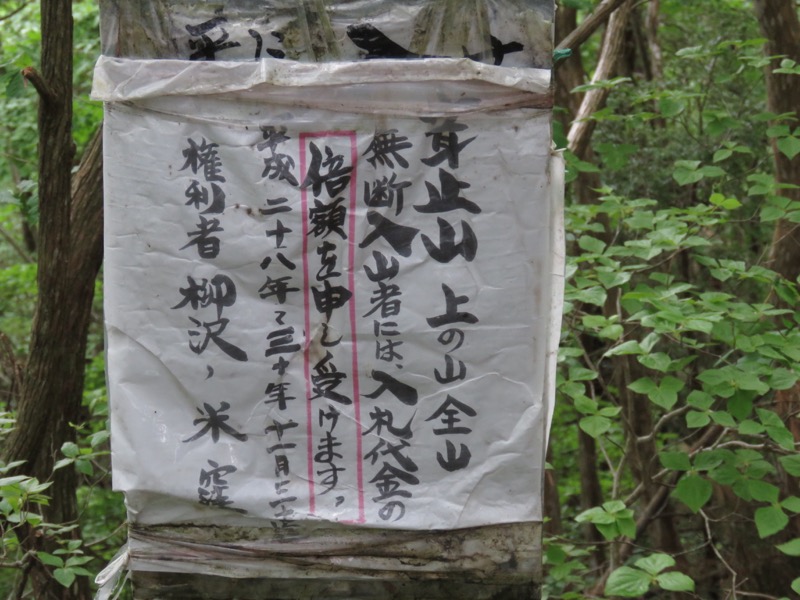 茸止山 上の山全山
無断入山者には、入札代金の
倍額を申し受けます。
平成二十八年〜三十年十一月三十迄
権利者 柳沢、米窪